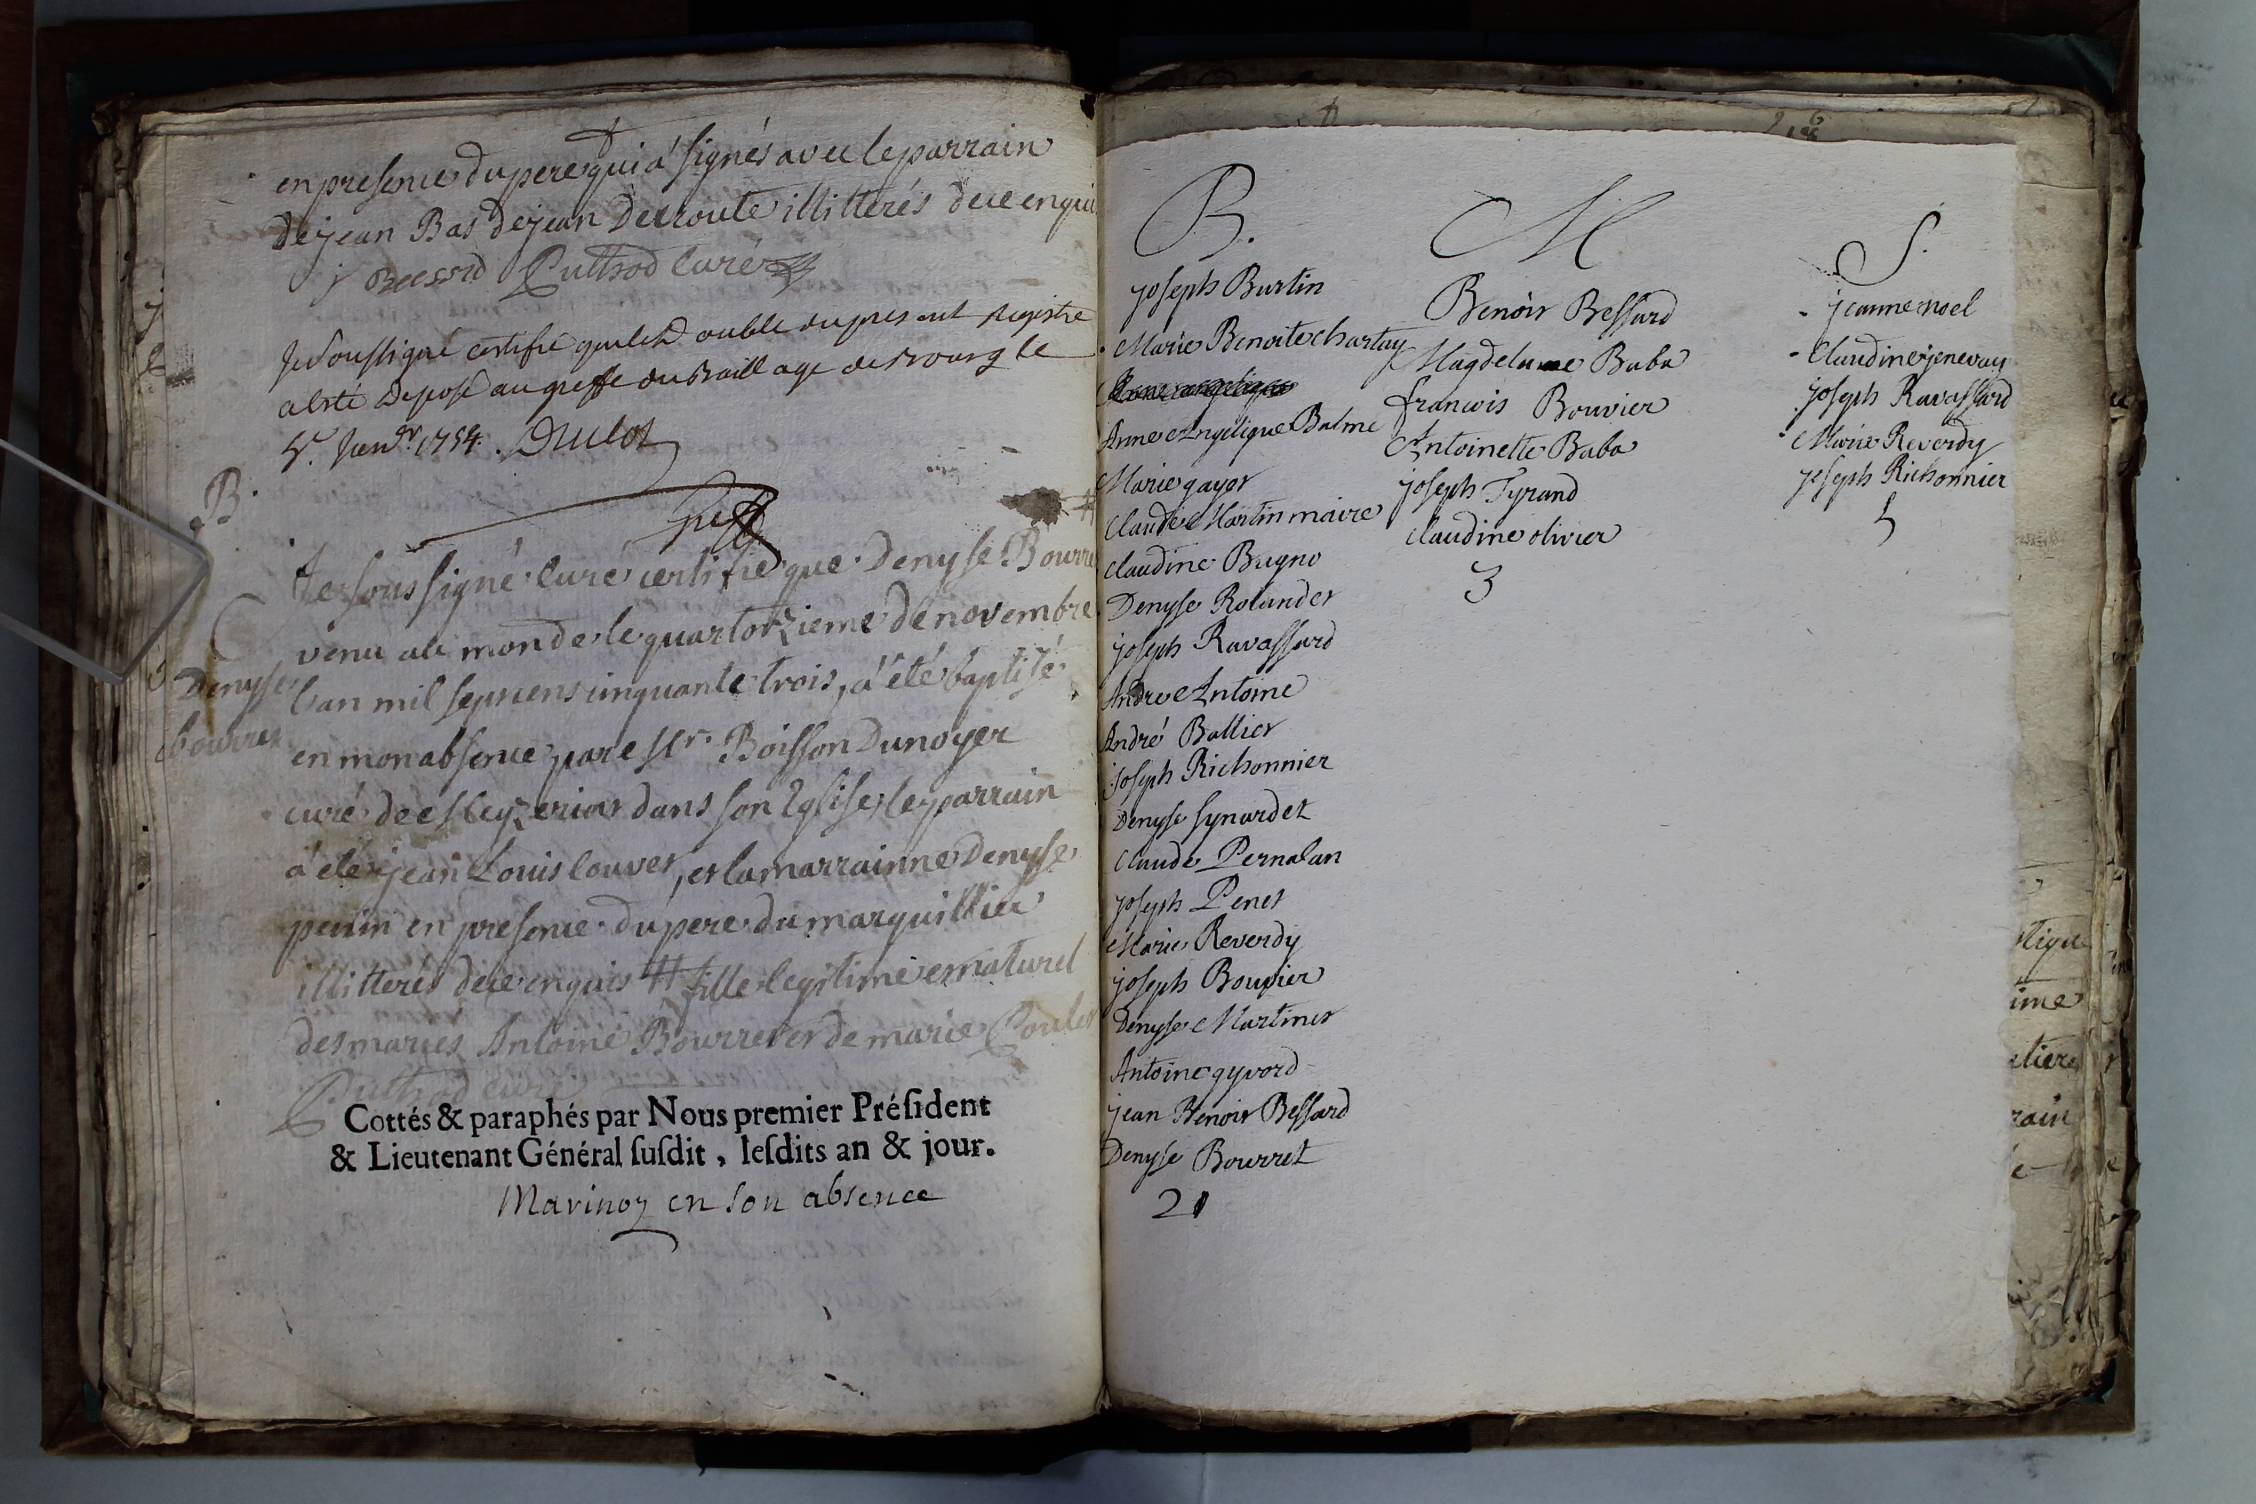 en presence du pere qui a signés avec le parrain
de jean Bas de jean Derroute illitterés de ce enquis
j Bessard Puthod Curé
Je soussigné certifie que le double du present Registre
a esté deposé au greffe du Baillage de Bourg le
5e. Janvr. 1754. Dulot
Greff
B.
Je sous signé Curé certifie que Denyse Bourret
venu au monde le quartorzieme de novembre
Denyse
l'an mil sept cens cinquante trois, a été baptisé
bourret
en mon absence par Mr. Boisson Dunoyer
curé de Ceyzeriat dans son Eglise, le parrain
a été jean Louis louvet, et la marrainne Denyse
perin en presence du pere du marguillier
illitterés de ce enquis # fille legitime et naturel
des mariés Antoine Bourret et de marie
Puthod curé
Cottés & paraphés par Nous premier Préſident
& Lieutenant Général ſuſdit, leſdits an & jour.
Marinoz en son absence
B.
joseph Burtin
Marie Benoite chartay
Anne Angelique Balme
Marie gayet
Claude Martin maire
Claudine Bugno
Denyse Rolandet
joseph Ravassard
Andre Antoine
André Ballier
joseph Richonnier
Denyse Synardet
Claude Pernalan
joseph Penet
Marie Reverdy
joseph Bouvier
Denyse Martinet
Antoine gyvord
jean Benoit Bessard
Denyse Bourret
21
M
Benoit Bessard
Magdelaine Baba
francois Bouvier
Antoinette Baba
joseph Tyrand
Claudine olivier
3
S.
jeanne noel
Claudine jenevay
joseph Ravassard
Marie Reverdy
joseph Richonnier
5